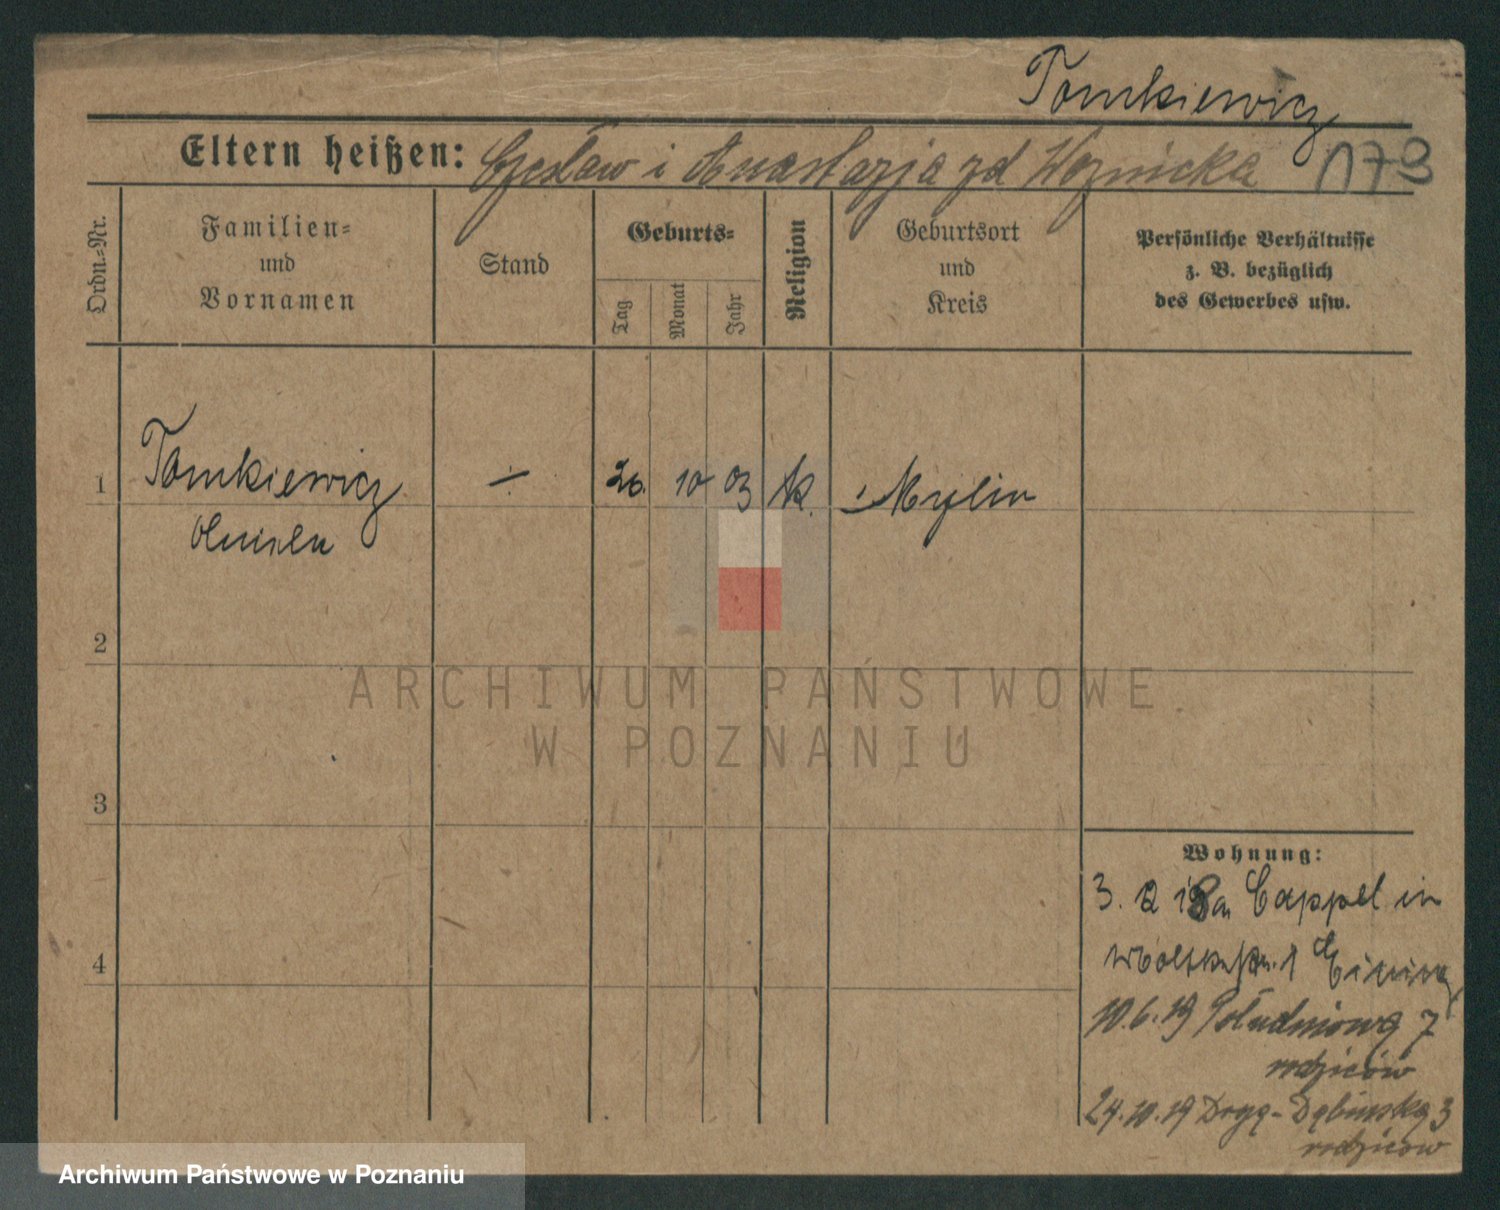 Tomkiewicz
Eltern heißen: Czesław i Anastazja zd Woznicka 1179
Ordn.-Nr.
Familien- und Vornamen
Stand
Geburts-
Tag
Monat
Jahr
Religion
Geburtsort und Kreis
Persönliche Verhältnisse z. B. bezüglich des Gewerbes usw.
1 Tomkiewicz 26. 10 03 k. Mylin
2
ARCHIWUM PAŃSTWOWE
W POZNANIU
3
Wohnung:
3. Cappel in
4
10.6.19 Południowa 7
rodziców
24.10.19 Drogą-Dębinską 3
rodziców
Archiwum Państwowe w Poznaniu